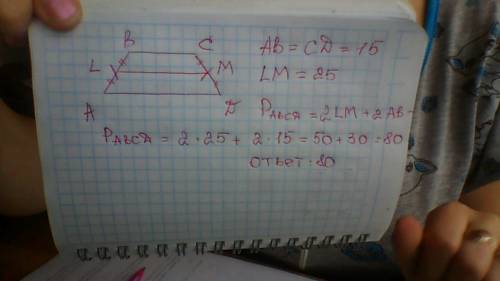 B C
L M
A D
AB = CD = 15
LM = 25
P_ABCD = 2LM + 2AB =
P_ABCD = 2 · 25 + 2 · 15 = 50 + 30 = 80
ответ: 80